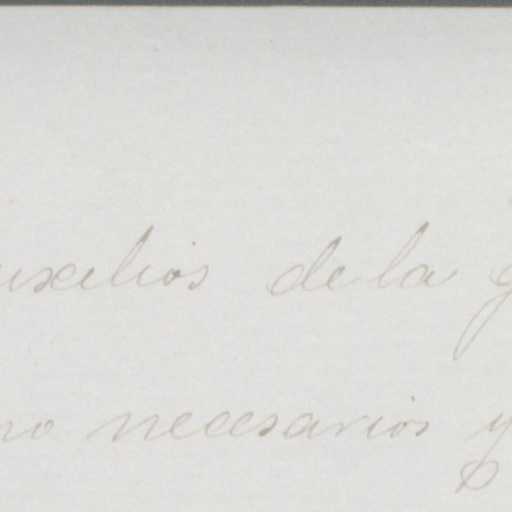 uxilios de la g
no necesarios y